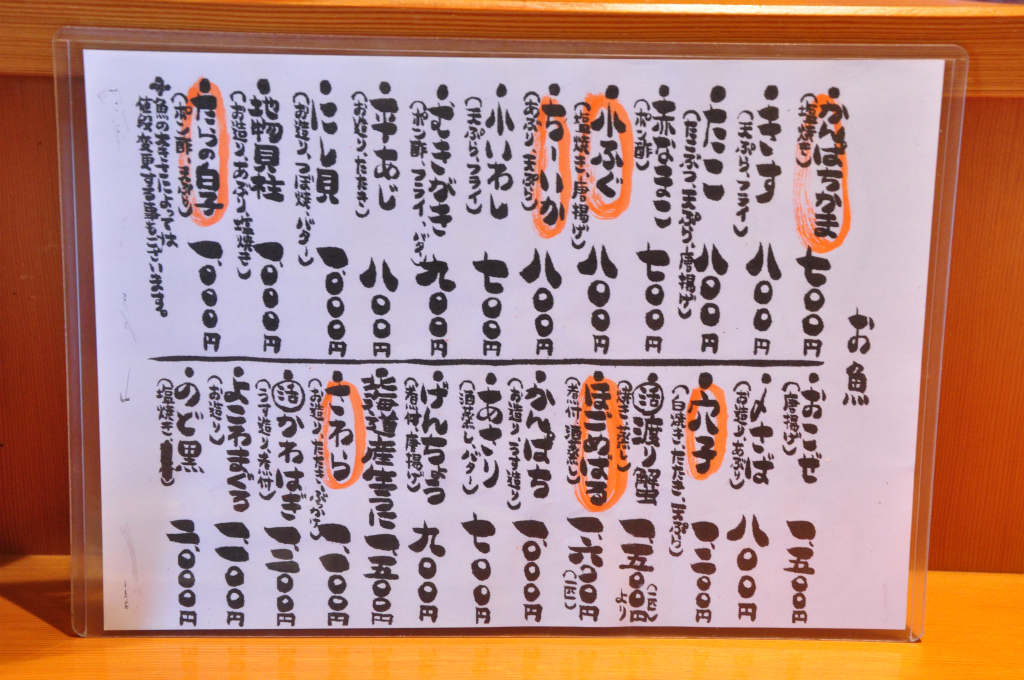 お魚
・かんぱちかま 七〇〇円
(塩焼き)
・きす 八〇〇円
(天ぷら、フライ)
・たこ 八〇〇円
・赤なまこ 七〇〇円
(ポン酢)
・小ふぐ 八〇〇円
(塩焼き、唐揚げ)
・ちーいか 八〇〇円
(お造り、天ぷら)
・小いわし 七〇〇円
(天ぷら、フライ)
・大きがき 九〇〇円
(ポン酢、フライ、バター)
・平あじ 八〇〇円
(お造り、たたき)
・にし貝 一、〇〇〇円
(お造り、つぼ焼、バター)
・地物貝柱 一、〇〇〇円
(お造り、あぶり、塩焼き)
・たらの白子 一、〇〇〇円
(ポン酢、天ぷら)
魚の大きさによっては
値段変更する事もございます。
・おこぜ 一、五〇〇円
(唐揚げ)
・よこさば 八〇〇円
(お造り、あぶり)
・穴子 一、二〇〇円
(白焼き、たたき、天ぷら)
・活渡り蟹 一、五〇〇円より
・ほごめばる 一、六〇〇円
(煮付、酒蒸し)
・かんぱち 一、〇〇〇円
(お造り、うす造り)
・あさり 七〇〇円
(酒蒸し、バター)
・げんちょう 九〇〇円
(煮付、唐揚げ)
・北海道産生うに 一、五〇〇円
・さわら 一、二〇〇円
(お造り、たたき、ぶっかけ)
・活かわはぎ 一、二〇〇円
(うす造り、煮付)
・よこわまぐろ 一、二〇〇円
(お造り)
・のど黒 二、〇〇〇円
(塩焼き)